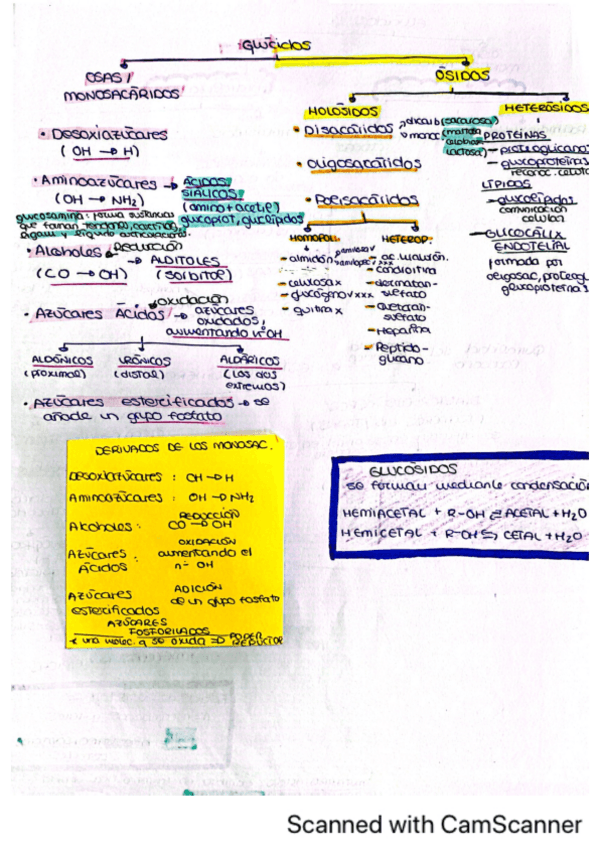 GLÚCIDOS
OSAS /
MONOSACÁRIDOS
ÓSIDOS
HOLÓSIDOS
HETERÓSIDOS
• Desoxiazúcares
(OH → H)
• Aminoazúcares → ÁCIDOS
SIÁLICOS
(OH → NH2)
(amino + acetil)
glucoprot, glucolípidos
glucosamina: forma sustancias
que forman tendones, cartílago,
• Alcoholes
Reducción
→ ALDITOLES
(CO → OH)
(sorbitol)
• Azúcares Ácidos
oxidación
→ azúcares
oxidados,
aumentando nº OH
ALDÓNICOS
(proximal)
URÓNICOS
(distal)
ALDÁRICOS
(los dos
extremos)
• Azúcares esterificados → se
añade un grupo fosfato
- Disacáridos
dicarb (sacarosa)
monoc (maltosa
celobiosa
lactosa)
- Oligosacáridos
- Polisacáridos
HOMOPOL:
- almidón
- celulosa x
- glucógeno v xxx
- quitina x
HETEROP:
- ac. hialurón.
- condroitina
- dermatan-
sulfato
- queratan-
sulfato
- Heparina
- Peptido-
glucano
PROTEÍNAS
- proteoglicano
- glucoproteínas
reconoc. celula
LÍPIDOS
- glucolípidos
comunicación
celular
- GLUCOCÁLIX
ENDOTELIAL
formada por
oligosac, proteogl
glucoproteínas
DERIVADOS DE LOS MONOSAC.
Desoxiazúcares : OH → H
Aminoazúcares : OH → NH2
REDUCCIÓN
Alcoholes : CO → OH
OXIDACIÓN
Azúcares : aumentando el
Ácidos nº OH
Azúcares ADICIÓN
de un grupo fosfato
esterificados
AZÚCARES
FOSFORILADOS
* una molec. q se oxida ⇒ PODER
REDUCTOR
GLUCÓSIDOS
se forman mediante condensación
HEMIACETAL + R-OH ⇌ ACETAL + H2O
HEMICETAL + R-OH ⇌ CETAL + H2O
Scanned with CamScanner